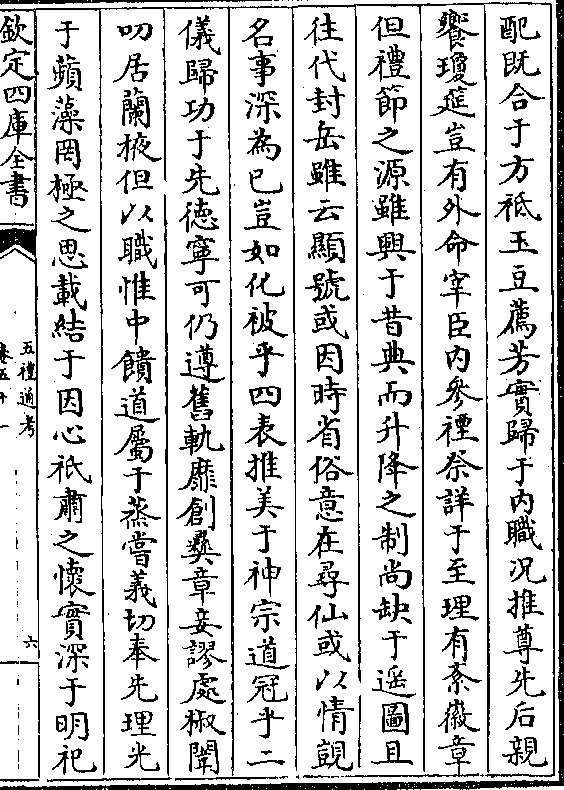 配既合于方祗玉豆薦芳實歸于内職况推尊先后親
饗瓊筵豈有外命宰臣内參禋祭詳于至理有紊徽章
但禮節之源雖興于昔典而升降之制尚缺于遥圖且
往代封岳雖云顯號或因時省俗意在尋仙或以情覬
名事深為已豈如化被乎四表推美于神宗道冠乎二
儀歸功于先德寧可仍遵舊軌靡創彜章妾謬處椒闈
叨居蘭掖但以職惟中饋道屬于蒸嘗義切奉先理光
于蘋藻罔極之思載結于因心祇肅之懷實深于明祀
欽定四庫全書
五禮通考
六